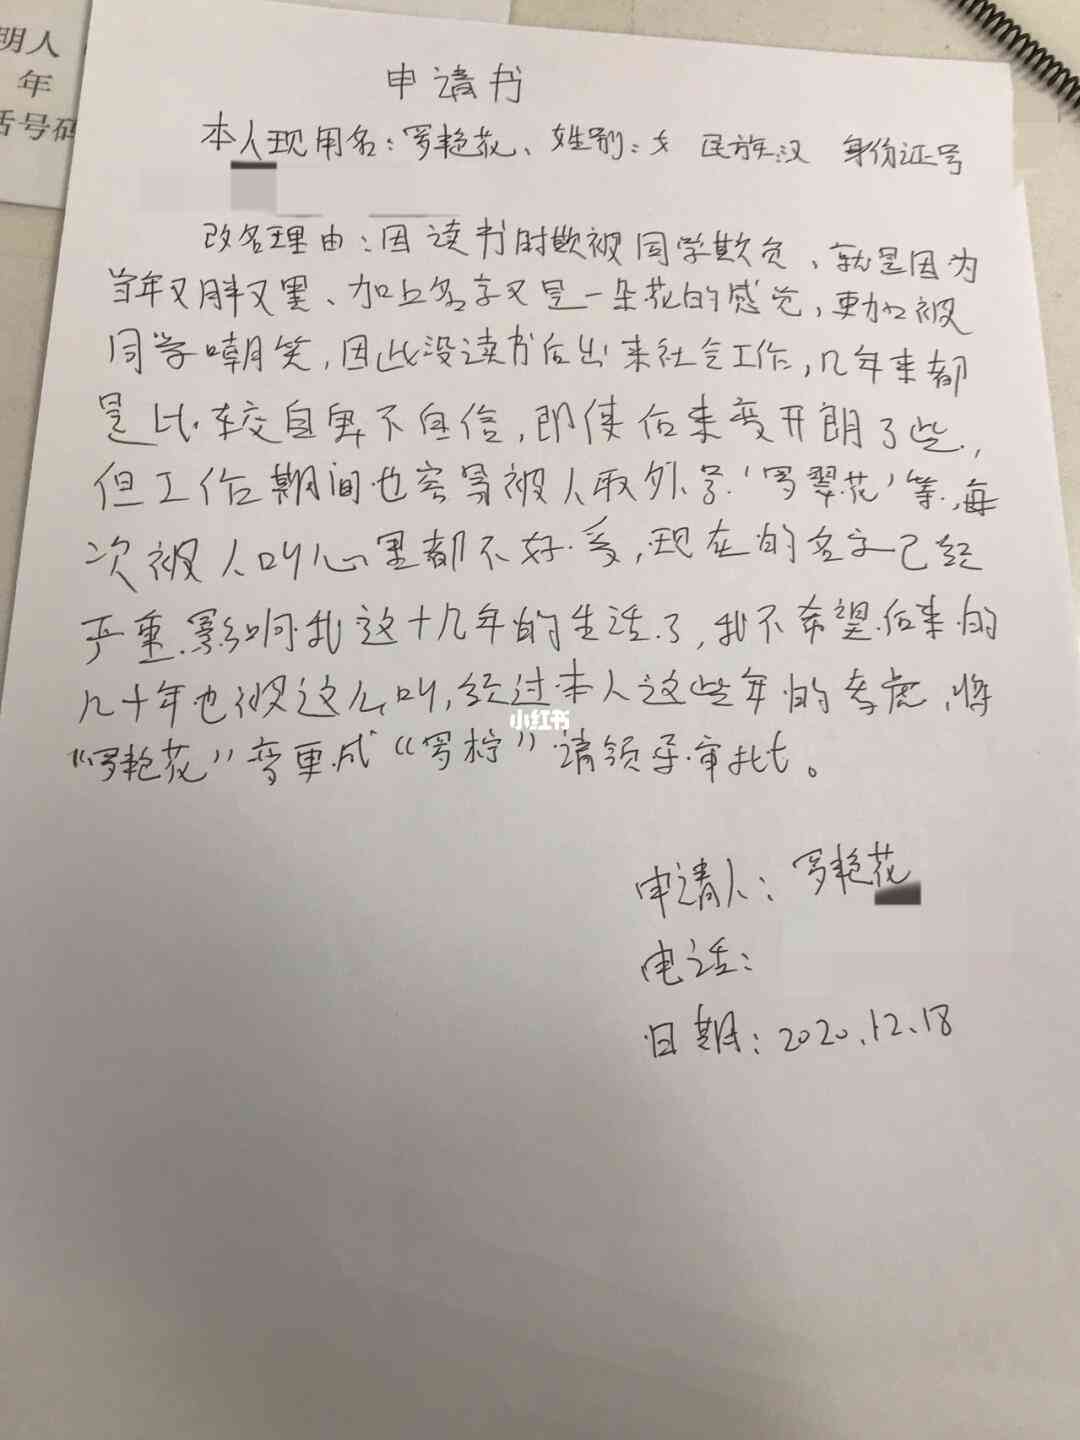 明人
年
话号码
申请书
本人现用名：罗艳花、姓别：女 民族汉 身份证号
改名理由：因读书时欺被同学欺负、就是因为
当年又胖又黑、加上名字又是一朵花的感觉，更加被
同学嘲笑，因此没读书后出来社会工作，几年来都
是比较自卑不自信，即使后来变开朗了些，
但工作期间也容易被人取外号'罗翠花'等，每
次被人叫心里都不好受，现在的名字已经
严重影响我这十几年的生活了，我不希望后来的
几十年也被这么叫，经过本人这些年的考虑，将
小红书
“罗艳花”变更成“罗柠”请领导审批。
申请人：罗艳花
电话：
日期：2020.12.18